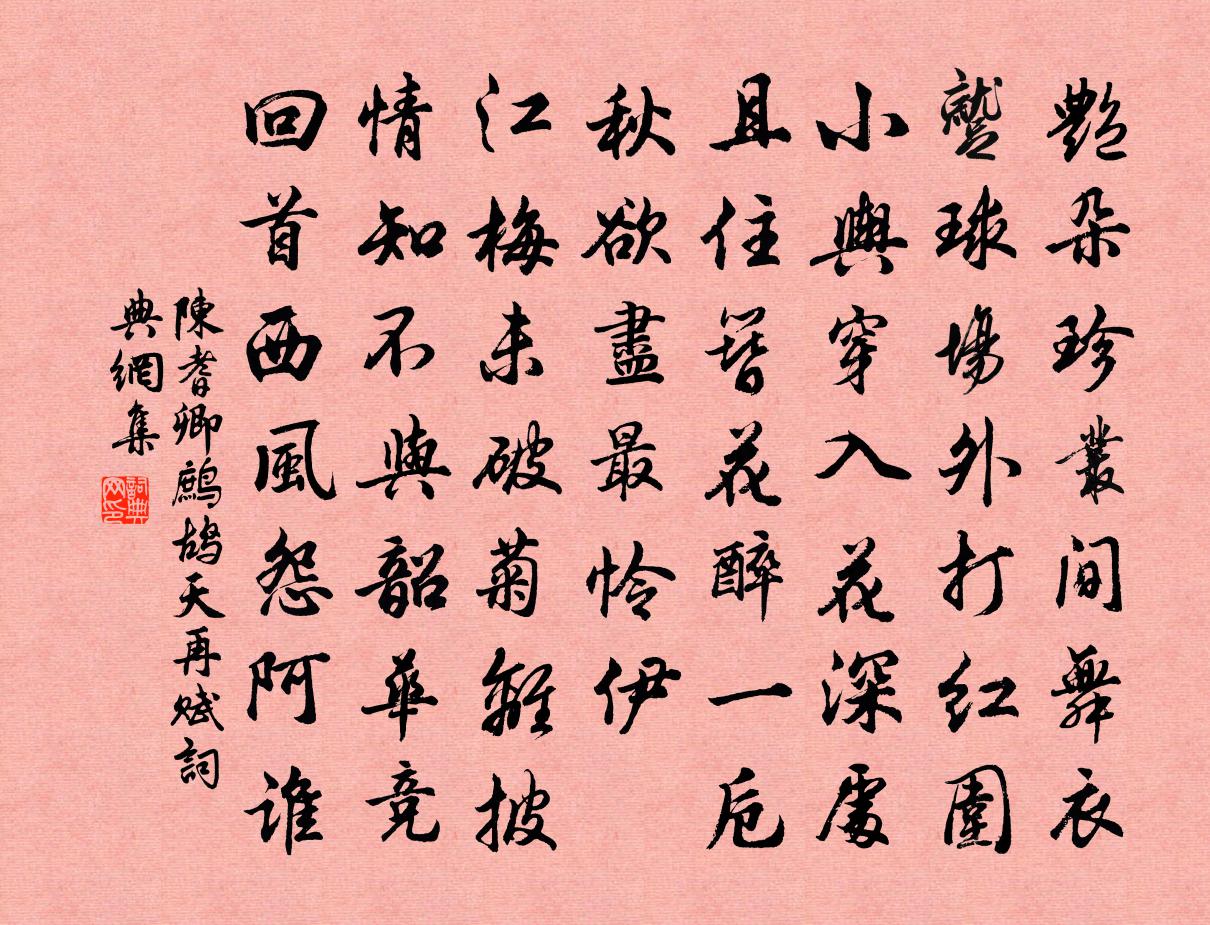 艷朵珍叢間舞衣
蹵球場外打紅圍
小輿穿入花深處
且住簪花醉一卮
秋欲盡最怜伊
江梅未破菊離披
情知不與韶華競
回首西風怨阿誰
陳耆卿鷓鴣天再賦詞
典網集
詞典
网印